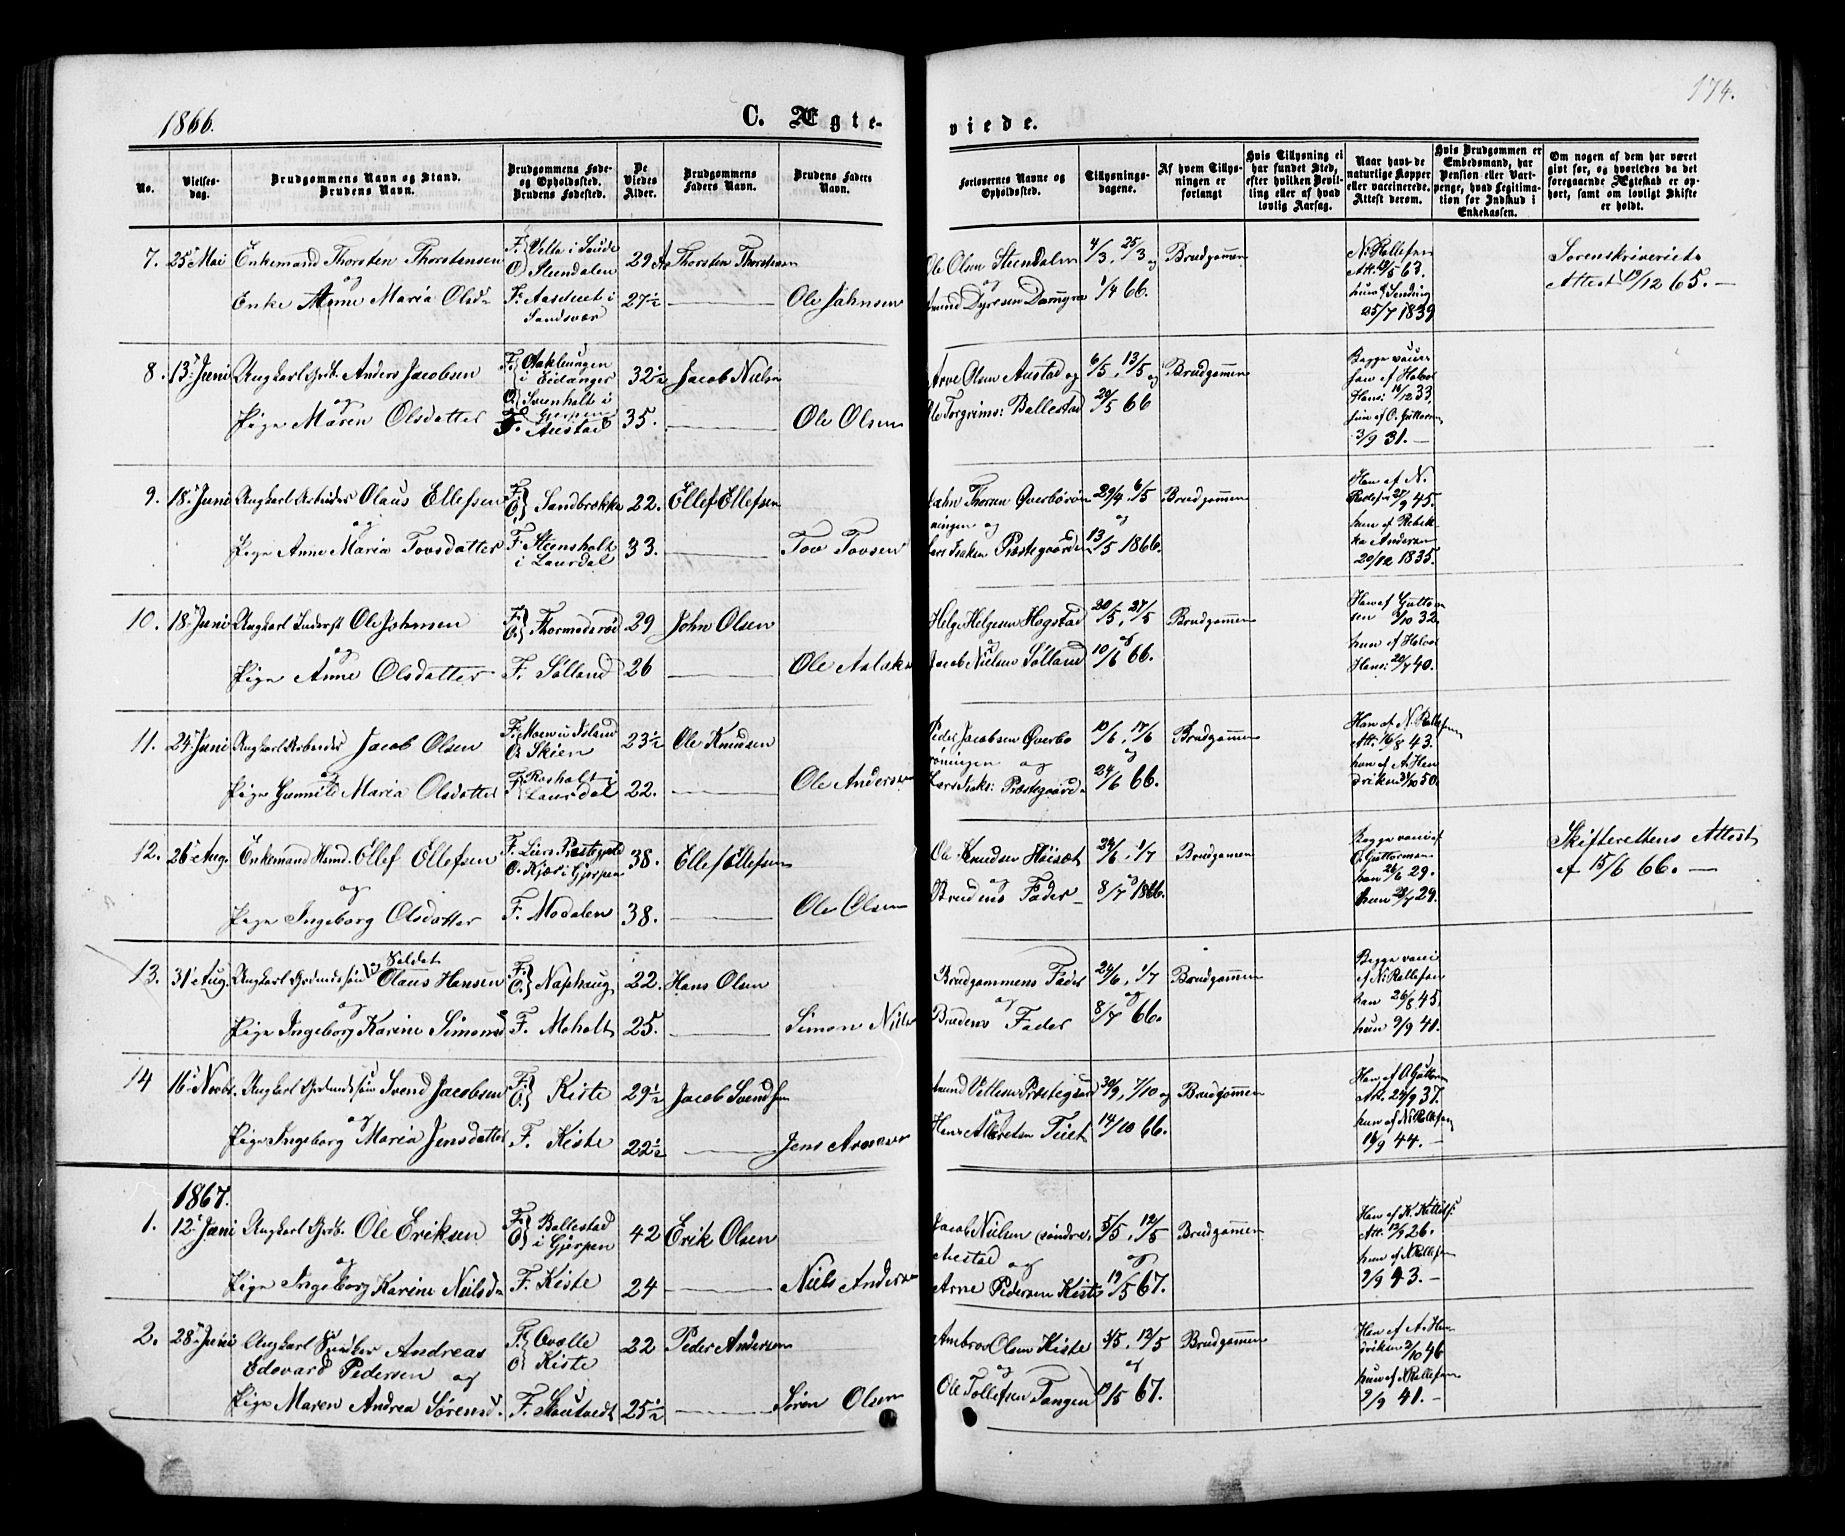 1866.
C. Ægte-
viede.
174.
No.
Vielses-
dag.
Brudgommens Navn og Stand.
Brudens Navn.
Brudgommens Føde-
og Opholdssted.
Brudens Fødested.
De
Viedes
Alder.
Brudgommens
Faders Navn.
Brudens Faders
Navn.
Forlovernes Navne og
Opholdssted.
Tillysnings-
dagene.
Af hvem Tillys-
ningen er
forlangt
Hvis Tillysning ei
har fundet Sted,
efter hvilken Bevil-
ling eller af hvad
lovlig Aarsag.
Naar havt de
naturlige Kopper
eller vaccinerede.
Attest derom.
Hvis Brudgommen er
Embedsmand, har
Pension eller Vart-
penge, hvad Legitima-
tion for Indskud i
Enkekassen.
Om nogen af dem har været
gift før, og hvorledes da det
foregaaende Ægteskab er op-
hørt, samt om lovligt Skifte
er holdt.
7. 25 Mai Enkemand Thorsten Thorstensen
og
Enke Anne Maria Olsd.
F. Vella i Saude
O. Steendalen
F. Aasteet i
Sandsvær
29
27½
Thorsten Thorstensen
Ole Johnsen
Ole Olsen Steendalen
og
Amund Dyresen Damyra
4/3, 25/3 og
1/4 66.
Brudgommen
N. Rollefsen
Att. 12/5 63.
hun Sending
25/7 1839
Sorenskriveriets
Attest 19/12 65.
8. 13 Juni Ungkarl Grb. Anders Jacobsen
og
Pige Maren Olsdatter
F. Aaklungen
i Eidanger
O. Svenholt i
Gjerpen
F. Austad
32½
35.
Jacob Nielsen
Ole Olsen
Arve Olsen Austad og
Ole Torgrims: Ballestad
6/5, 13/5 og
20/5 66
Brudgommen
Begge vacc.
han af Halvor
Hans: 16/12 33,
hun af O. Guttorm
3/9 31.
9. 18 Juni Ungkarl Arbeider Olaus Ellefsen
og
Pige Anne Maria Tovsdatter
F.
O. Sandbrekke
F. Steensholt
i Laurdal
22.
33.
Ellef Ellefsen
Tov Tovsen
John Thorsen Øverbørøn-
ningen og
Lars Isaksen Præstegaarden
29/4, 6/5
og
13/5 1866.
Brudgommen
Han af N.
Rollefs 27/9 45.
hun af Rebek-
ka Andersen
20/12 1835.
10. 18 Juni Ungkarl Inderst Ole Johnsen
og
Pige Anne Olsdatter
F.
O. Thormodsrød
F. Sølland
29
26
John Olsen
Ole Aslaks
Helge Helgesen Hogstad
og
Jacob Nielsen Sølland
20/5, 27/5
og
10/6 66.
Brudgommen
Han af Guttorm-
sen 5/10 32.
hun af Halvor
Hans: 20/7 40.
11. 24 Juni Ungkarl Arbeider Jacob Olsen
og
Pige Gunnild Maria Olsdatter
F. Moen i Nøland
O. Skien
F. Rosholt i
Laurdal
23½
22.
Ole Knudsen
Ole Andersen
Peder Jacobsen Øverbø-
røningen og
Lars Isaks: Præstegaard
10/6, 17/6
og
24/6 66.
Brudgommen
Han af N. Rollefsen
Att. 16/8 43.
hun af A. Hen-
driksen 3/10 50.
12. 26 Aug. Enkemand Husmd. Ellef Ellefsen
og
Pige Ingeborg Olsdatter
F.
O. Kjær i Gjerpen
F. Modalen
38.
38.
Ellef Ellefsen
Ole Olsen
Ole Knudsen Høisæt
og
Brudens Fader
24/6, 1/7
og
8/7 1866.
Brudgommen
Begge vacc. af
O. Guttormsen
han 26/6 29.
hun 28/7 29.
Skifterettens Attest
af 15/6 66.
13. 31 Aug. Ungkarl Grdmdsøn og Soldat Olaus Hansen
og
Pige Ingeborg Karine Simonsd
F.
O. Naphaug
F. Moholt
22.
25.
Hans Olsen
Simon Niels
Brudgommens Fader
og
Brudens Fader
24/6, 1/7
og
8/7 66.
Brudgommen
Begge vacc.
af N. Rollefsen
han 26/8 45,
hun 9/9 41.
14 16 Novbr. Ungkarl Grdmdsøn Svend Jacobsen
og
Pige Ingeborg Maria Jensdatter
F.
O. Kiste
F. Kiste
29½
22½
Jacob Svendsen
Jens Arnesen
Amund Villesen Præstegaard
og
Hans Albretsen Tuet
30/9, 7/10 og
14/10 66.
Brudgommen
Han af O. Guttorm
Att. 24/9 37.
hun af N. Rollefsen
16/9 44.
1867.
1. 12 Juni Ungkarl Grdb. Ole Eriksen
og
Pige Ingeborg Karine Nielsd
F.
O. Ballestad
i Gjerpen
F. Kiste
42
24
Erik Olsen
Niels Andersen
Jacob Nielsen søndre
Mæstad og
Arne Pedersen Kiste
5/5, 12/5
og
19/5 67.
Brudgommen
Han af K. Kittils:
Att. 12/9 26.
hun af N. Rollefsen
2/9 43.
2. 28 Juni Ungkarl Snedker Andreas
Edevard Pedersen og
Pige Maren Andrea Sørensd.
F. Qvolle
O. Kiste
F. Skoutvedt
22
25½
Peder Andersen
Søren Olsen
Ambros Olsen Kiste
og
Ole Tollefsen Tangen
5/5, 12/5
og
19/5 67.
Brudgommen
Han af A. Hen-
driksen 2/10 46
hun af N. Rollefsen
2/9 41.